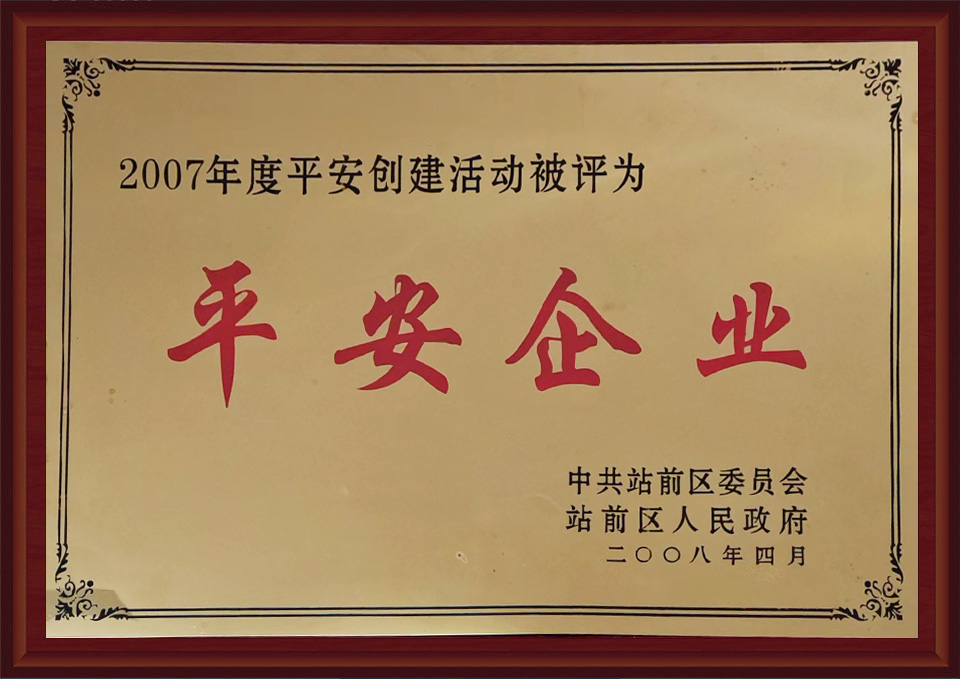 2007年度平安创建活动被评为
平安企业
中共站前区委员会
站前区人民政府
二〇〇八年四月